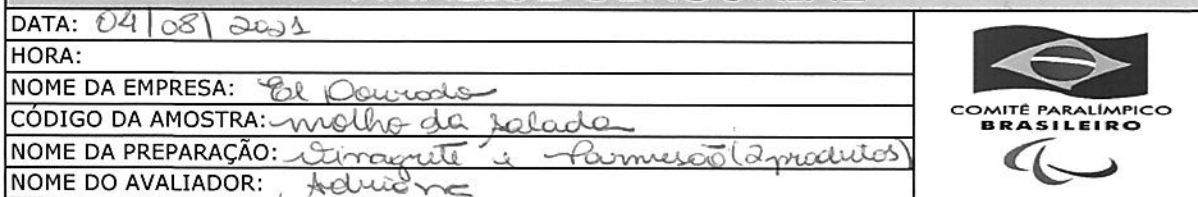 DATA: 04/08/2021
HORA:
NOME DA EMPRESA: El Dourado
CÓDIGO DA AMOSTRA: molho da salada
NOME DA PREPARAÇÃO: Vinagrete e Parmesão (2 produtos)
NOME DO AVALIADOR: Adriane
COMITÊ PARALÍMPICO
BRASILEIRO